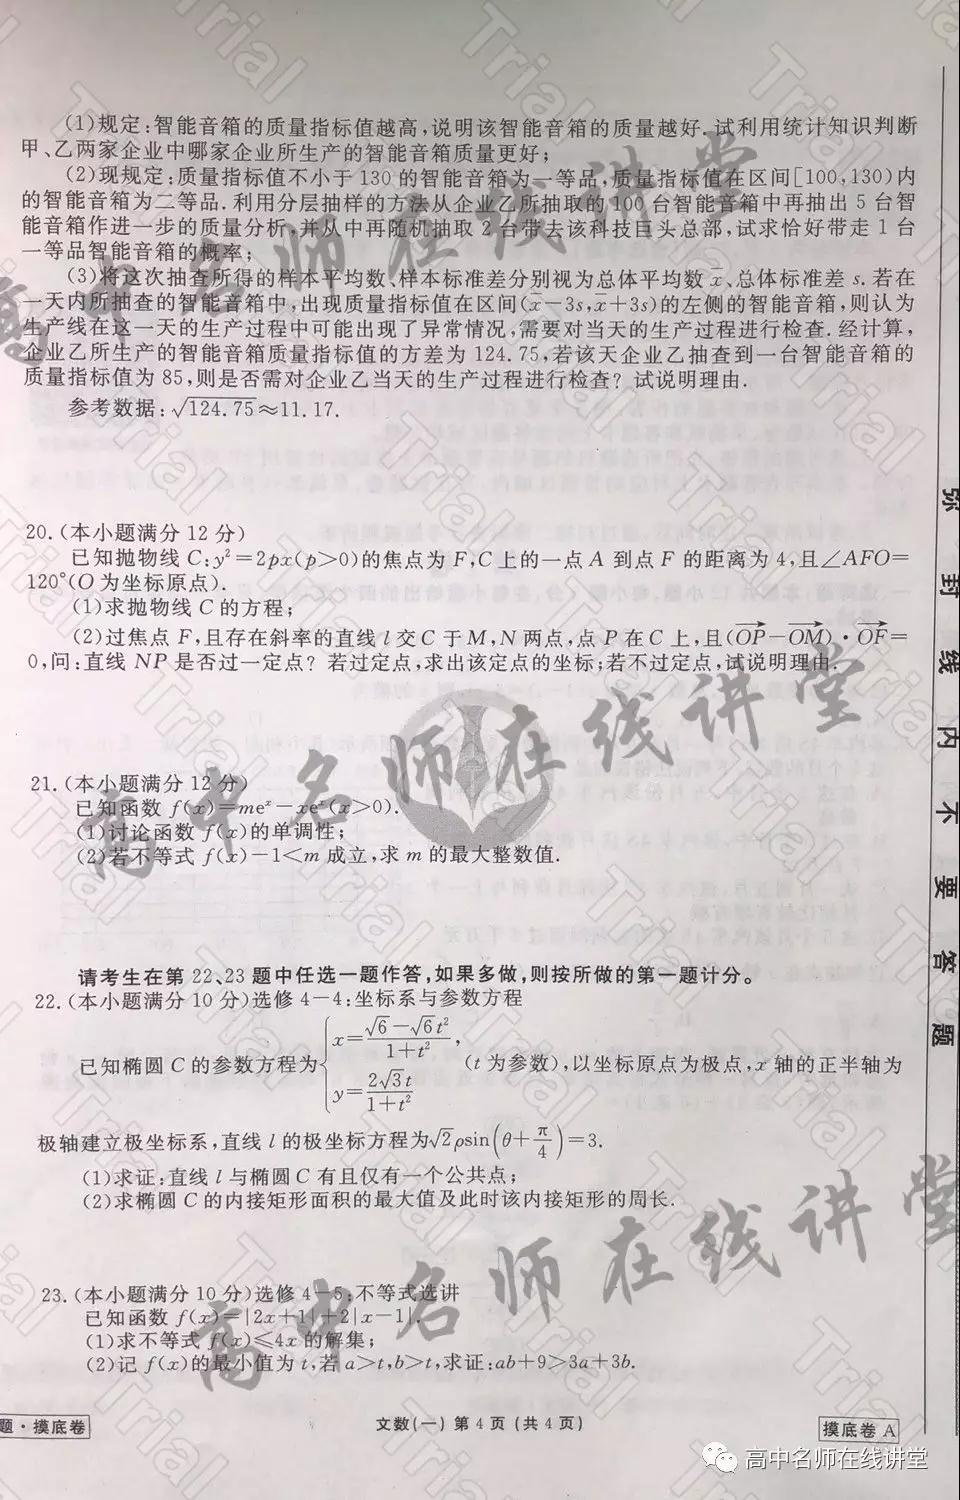 (1)规定:智能音箱的质量指标值越高,说明该智能音箱的质量越好.试利用统计知识判断
甲、乙两家企业中哪家企业所生产的智能音箱质量更好;
(2)现规定:质量指标值不小于130的智能音箱为一等品,质量指标值在区间[100,130)内
的智能音箱为二等品.利用分层抽样的方法从企业乙所抽取的100台智能音箱中再抽出5台智
能音箱作进一步的质量分析,并从中再随机抽取2台带去该科技巨头总部,试求恰好带走1台
一等品智能音箱的概率;
(3)将这次抽查所得的样本平均数、样本标准差分别视为总体平均数x̄、总体标准差s.若在
一天内所抽查的智能音箱中,出现质量指标值在区间(x̄-3s,x̄+3s)的左侧的智能音箱,则认为
生产线在这一天的生产过程中可能出现了异常情况,需要对当天的生产过程进行检查.经计算,
企业乙所生产的智能音箱质量指标值的方差为124.75,若该天企业乙抽查到一台智能音箱的
质量指标值为85,则是否需对企业乙当天的生产过程进行检查?试说明理由.
参考数据:√124.75≈11.17.
20.(本小题满分12分)
已知抛物线C:y²=2px(p>0)的焦点为F,C上的一点A到点F的距离为4,且∠AFO=
120°(O为坐标原点).
(1)求抛物线C的方程;
(2)过焦点F,且存在斜率的直线l交C于M,N两点,点P在C上,且(OP-OM)·OF=
0,问:直线NP是否过一定点?若过定点,求出该定点的坐标;若不过定点,试说明理由.
21.(本小题满分12分)
已知函数f(x)=meˣ-xeˣ(x>0).
(1)讨论函数f(x)的单调性;
(2)若不等式f(x)-1<m成立,求m的最大整数值.
请考生在第22、23题中任选一题作答,如果多做,则按所做的第一题计分。
22.(本小题满分10分)选修4-4:坐标系与参数方程
已知椭圆C的参数方程为{x=(√6-√6t²)/(1+t²), y=2√3t/(1+t²) (t为参数),以坐标原点为极点,x轴的正半轴为
极轴建立极坐标系,直线l的极坐标方程为√2ρsin(θ+π/4)=3.
(1)求证:直线l与椭圆C有且仅有一个公共点;
(2)求椭圆C的内接矩形面积的最大值及此时该内接矩形的周长.
23.(本小题满分10分)选修4-5:不等式选讲
已知函数f(x)=|2x+1|+2|x-1|.
(1)求不等式f(x)≤4x的解集;
(2)记f(x)的最小值为t,若a>t,b>t,求证:ab+9>3a+3b.
题·摸底卷
文数(一) 第4页(共4页)
摸底卷 A
弥封线内不要答题
高中名师在线讲堂
高中名师在线讲堂
高中名师在线讲堂
高中名师在线讲堂
Trial